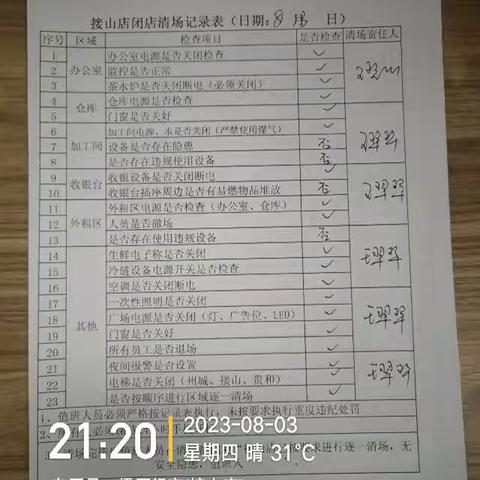 接山店闭店清场记录表（日期：8月 日）
序号 区域 检查项目 是否检查 清场责任人
1 办公室电源是否关闭检查 ✓
2 办公室 监控是否正常 ✓
3 茶水炉是否关闭断电（必须关闭） ✓
4 仓库 仓库电源是否检查 ✓
5 门窗是否关好 ✓
6 加工间电源、水是否关闭（严禁使用煤气） ✓
7 加工间 设备是否存在隐患 否
8 是否存在违规使用设备 否
9 收银台 收银设备是否关闭断电 ✓
10 收银台插座周边是否有易燃物品堆放 否
11 外租区电源是否检查（办公室、仓库） ✓
12 外租区 人员是否撤场 ✓
13 是否存在使用违规设备 否
14 生鲜电子称是否关闭 ✓
15 冷链设备电源开关是否检查 ✓
16 空调是否关闭断电 ✓
17 一次性照明是否关闭 ✓
18 其他 广场电源是否关闭（灯、广告位、LED） ✓
19 门窗是否关好 ✓
20 所有员工是否退场 ✓
21 夜间报警是否设置 ✓
22 电梯是否关闭（州城、接山、贵和） ✓
23 是否按顺序进行区域逐一清场 ✓
1、值班人员必须严格按记录表执行，未按要求执行重度违纪处罚
21:20
2023-08-03
星期四 晴 31℃
求进行逐一清场，无
安全隐患，值班人